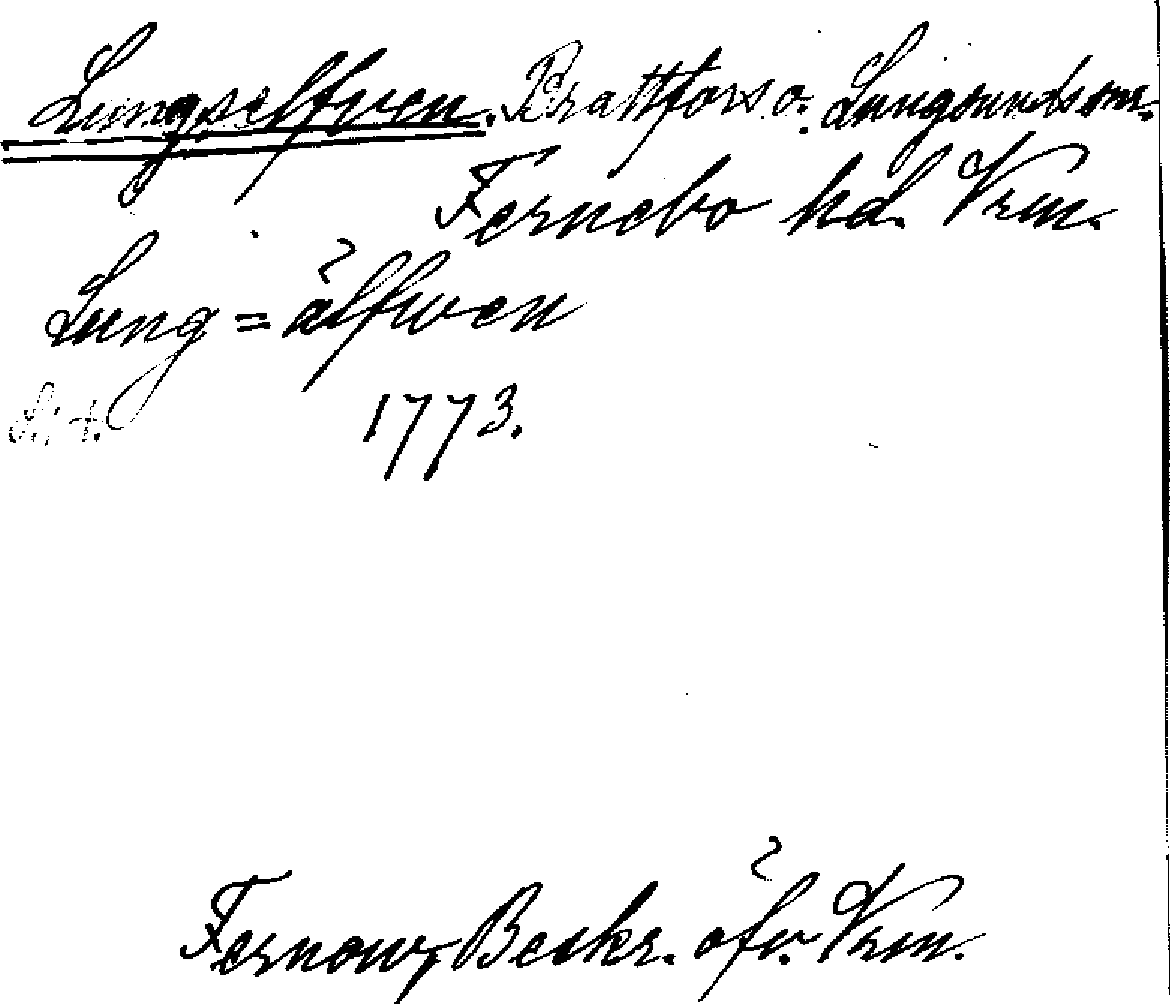 Lungselfven. Brattfors o. Lungsunds snr.
Fernebo hd. Vrm.
Lung=älfwen
1773.
Fernow, Beskr. öfv. Vrm.